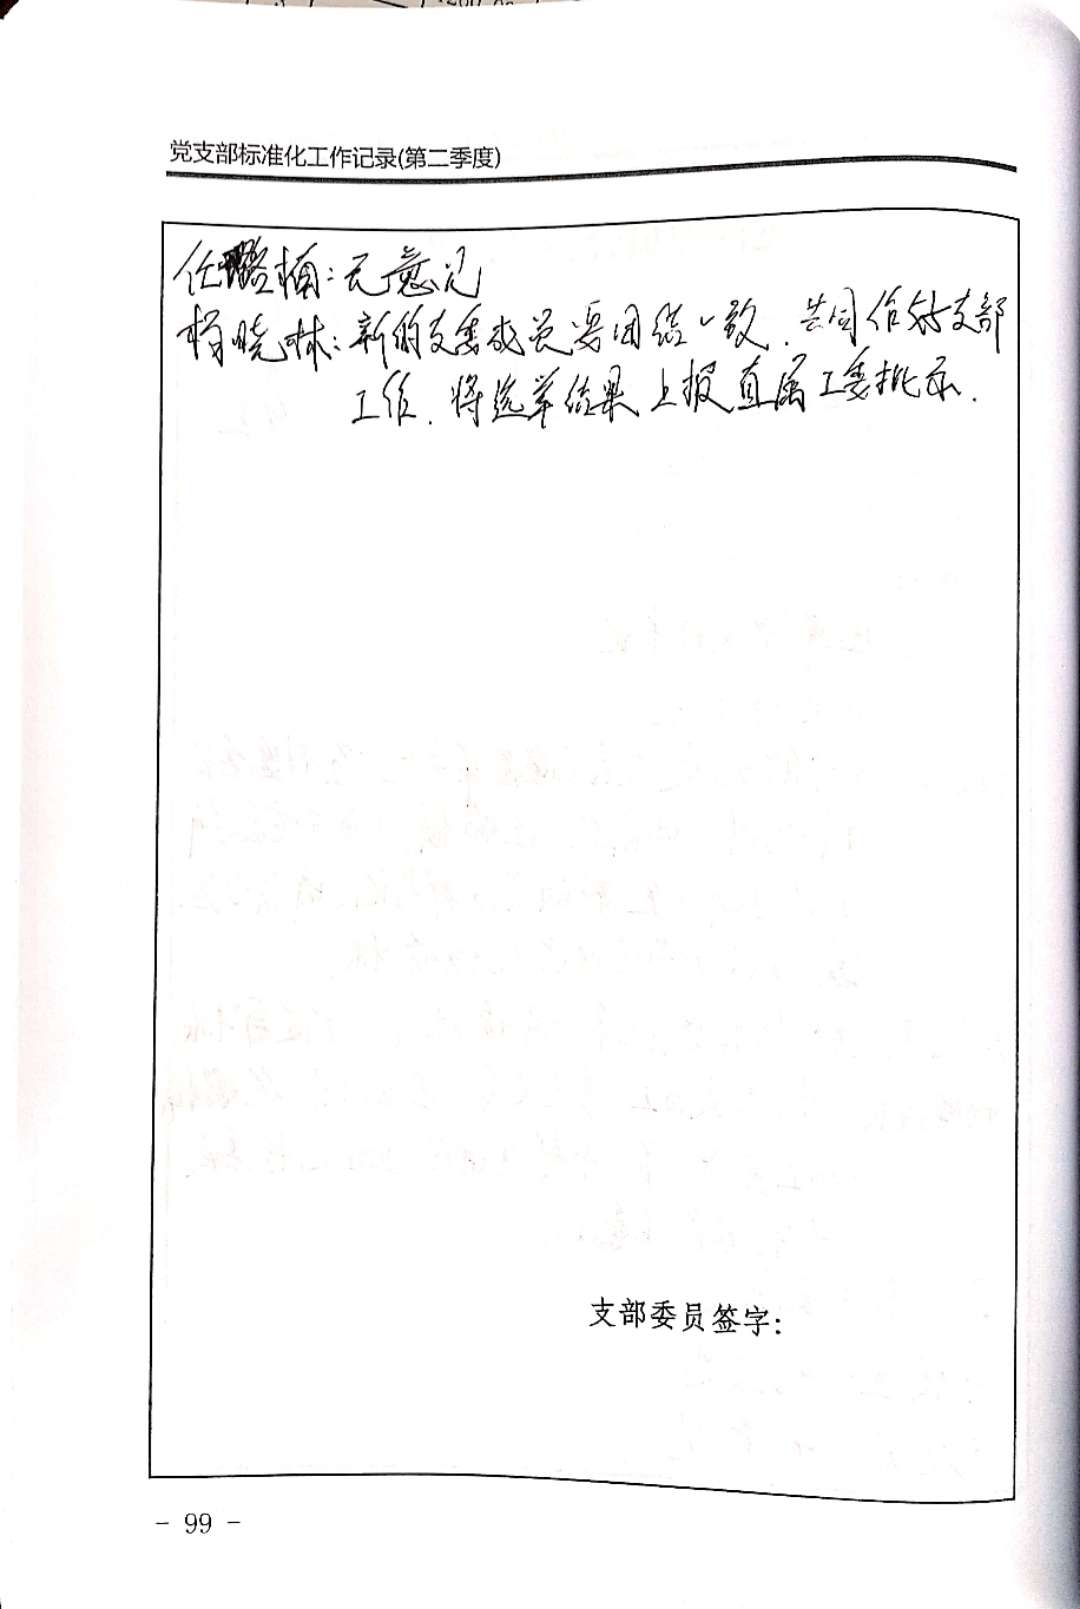 党支部标准化工作记录(第二季度)
任楠：无意见
杨晓林：新的支委成员要团结一致，共同作好支部
工作．将选举结果上报直属工委批示．
支部委员签字：
- 99 -